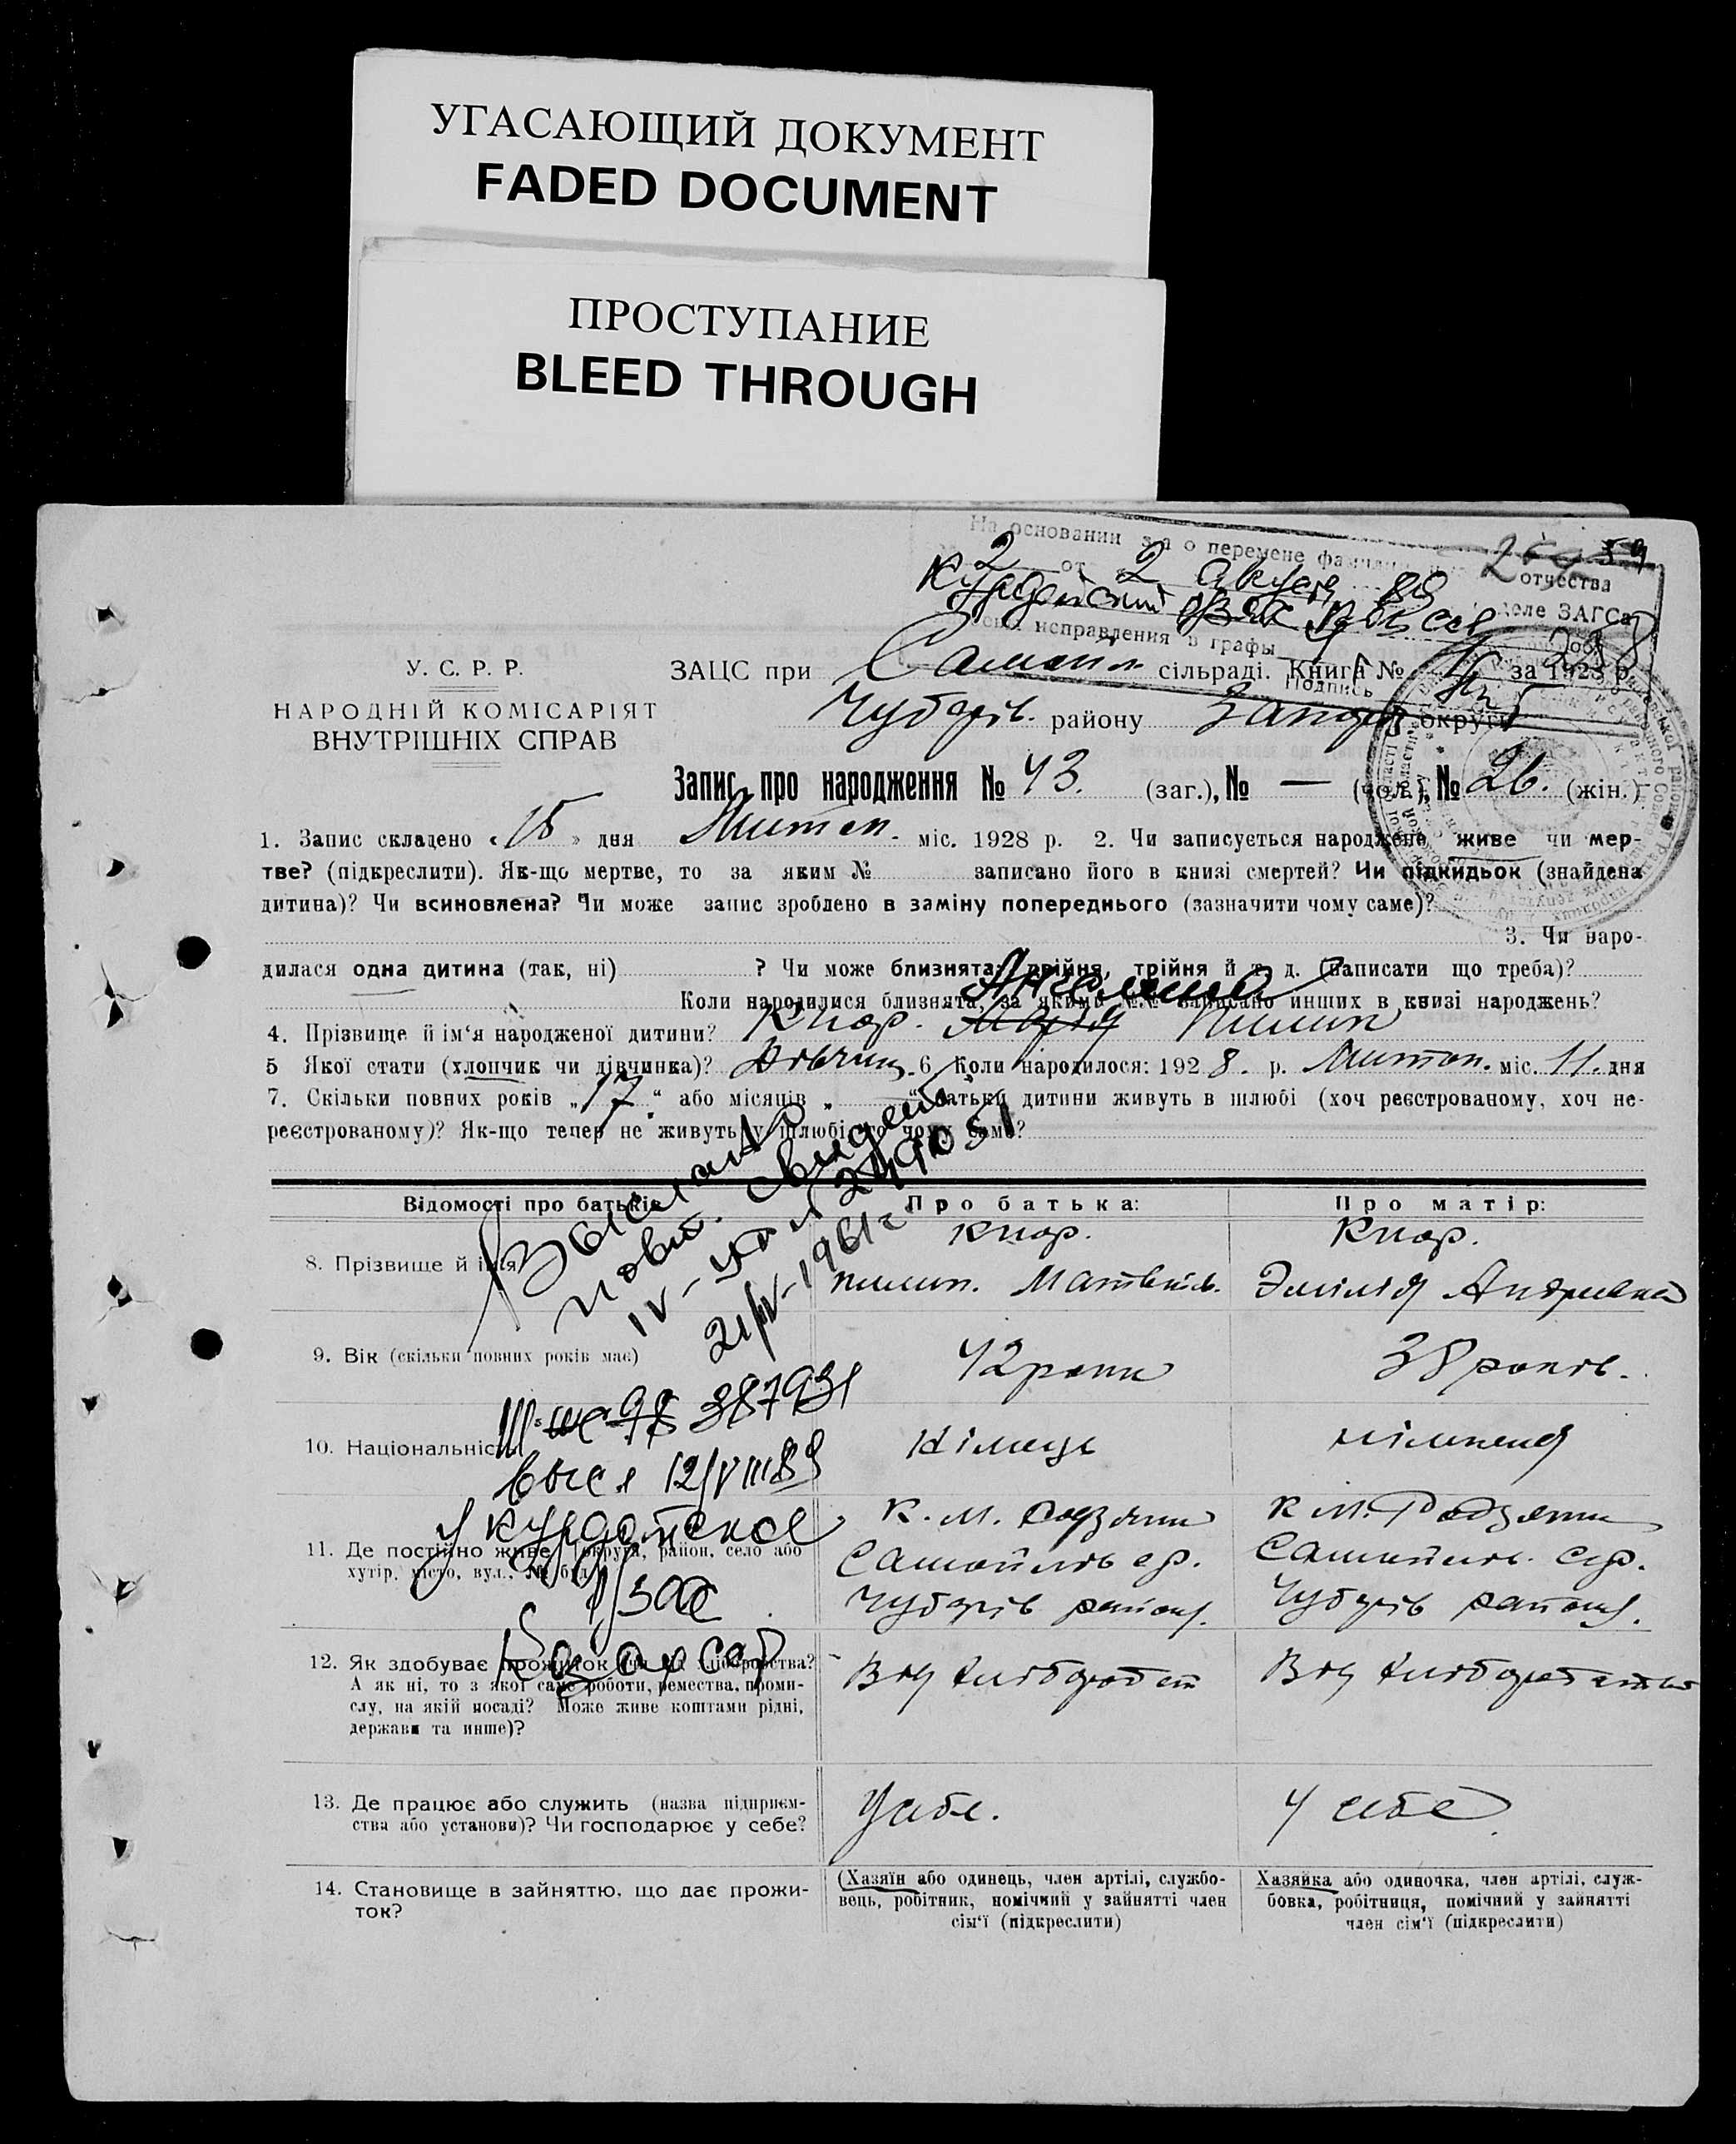 УГАСАЮЩИЙ ДОКУМЕНТ
FADED DOCUMENT
ПРОСТУПАНИЕ
BLEED THROUGH
На основании з-а о перемене
отчества
2 от 2 89
ЗАГСа
исправления в графы
Подпись
У. С. Р. Р.
НАРОДНІЙ КОМІСАРІЯТ
ВНУТРІШНІХ СПРАВ
ЗАЦС при Самойл. сільраді. Книга № за 1928 р.
Чубарів. району округи
Запис про народження № 43. (заг.), № — (чол.), № 26. (жін.)
1. Запис складено « 15 » дня Лютом. міс. 1928 р. 2. Чи записується народжене живе чи мер-
тве? (підкреслити). Як-що мертве, то за яким № записано його в книзі смертей? Чи підкидьок (знайдена
дитина)? Чи всиновлена? Чи може запис зроблено в заміну попереднього (зазначити чому саме)?
3. Чи наро-
дилася одна дитина (так, ні) ? Чи може близнята: двійня, трійня й т. д. (написати що треба)?
Коли народилися близнята, за якими №№ записано инших в книзі народжень?
4. Прізвище й ім‘я народженої дитини? Кнор. Марія Пилип
5 Якої стати (хлопчик чи дівчинка)? Дівчин. 6. Коли народилося: 1928. р. Лютом. міс. 11. дня
7. Скільки повних років „17.“ або місяців „ “ батьки дитини живуть в шлюбі (хоч реєстрованому, хоч не-
реєстрованому)? Як-що тепер не живуть у шлюбі, то чому саме?
Відомості про батьків Про батька: Про матір:
8. Прізвище й ім‘я Кнор. Кнор.
Пилип. Матвіїв. Эмілія Андріївна
9. Вік (скільки повних років має) 42 роки 38 років.
10. Національність Німець німкеня
11. Де постійно живе (округа, район, село або
хутір, місто, вул., № буд.
К. М. Родзянк К. М. Родзянк
Самойлів с.р. Самойлів. с.р.
Чубарів району. Чубарів району.
12. Як здобуває прожиток (чи від хліборобства?
А як ні, то з якої саме роботи, ремества, проми-
слу, на якій посаді? Може живе коштами рідні,
держави та инше)?
Від хлібороб Від хліборобства
13. Де працює або служить (назва підприєм-
ства або установи)? Чи господарює у себе?
У себе. У себе.
14. Становище в зайняттю, що дає прожи-
ток?
(Хазяїн або одинець, член артілі, службо-
вець, робітник, помічний у зайнятті член
сім‘ї (підкреслити)
Хазяйка або одиночка, член артілі, служ-
бовка, робітниця, помічний у зайнятті
член сім‘ї (підкреслити)
повт. свидет
21/IV-1961г
387931
12/VIII 89